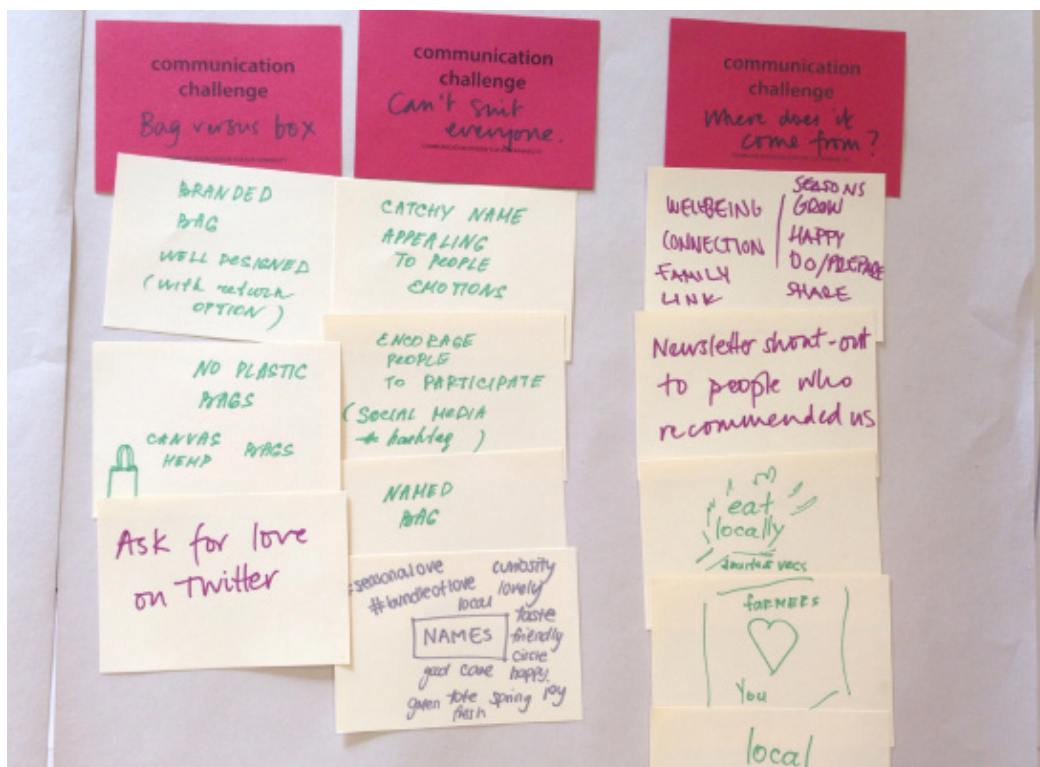 communication
challenge
Bag versus box
BRANDED
BAG
WELL DESIGNED
(with return
OPTION)
NO PLASTIC
BAGS
CANVAS
HEMP BAGS
Ask for love
on Twitter
communication
challenge
Can't suit
everyone.
CATCHY NAME
APPEALING
TO PEOPLE
EMOTIONS
ENCORAGE
PEOPLE
TO PARTICIPATE
(SOCIAL MEDIA
hashtag)
NAMED
BAG
#seasonalove curiosity
#bundleoflove lovely
local taste
NAMES friendly
circle
good care happy.
green tote spring joy
fresh
communication
challenge
Where does it
come from?
WELLBEING
CONNECTION
FAMILY
LINK
SEASONS
GROW
HAPPY
DO/PREPARE
SHARE
Newsletter shout-out
to people who
recommended us
eat
locally
farmers
You
local